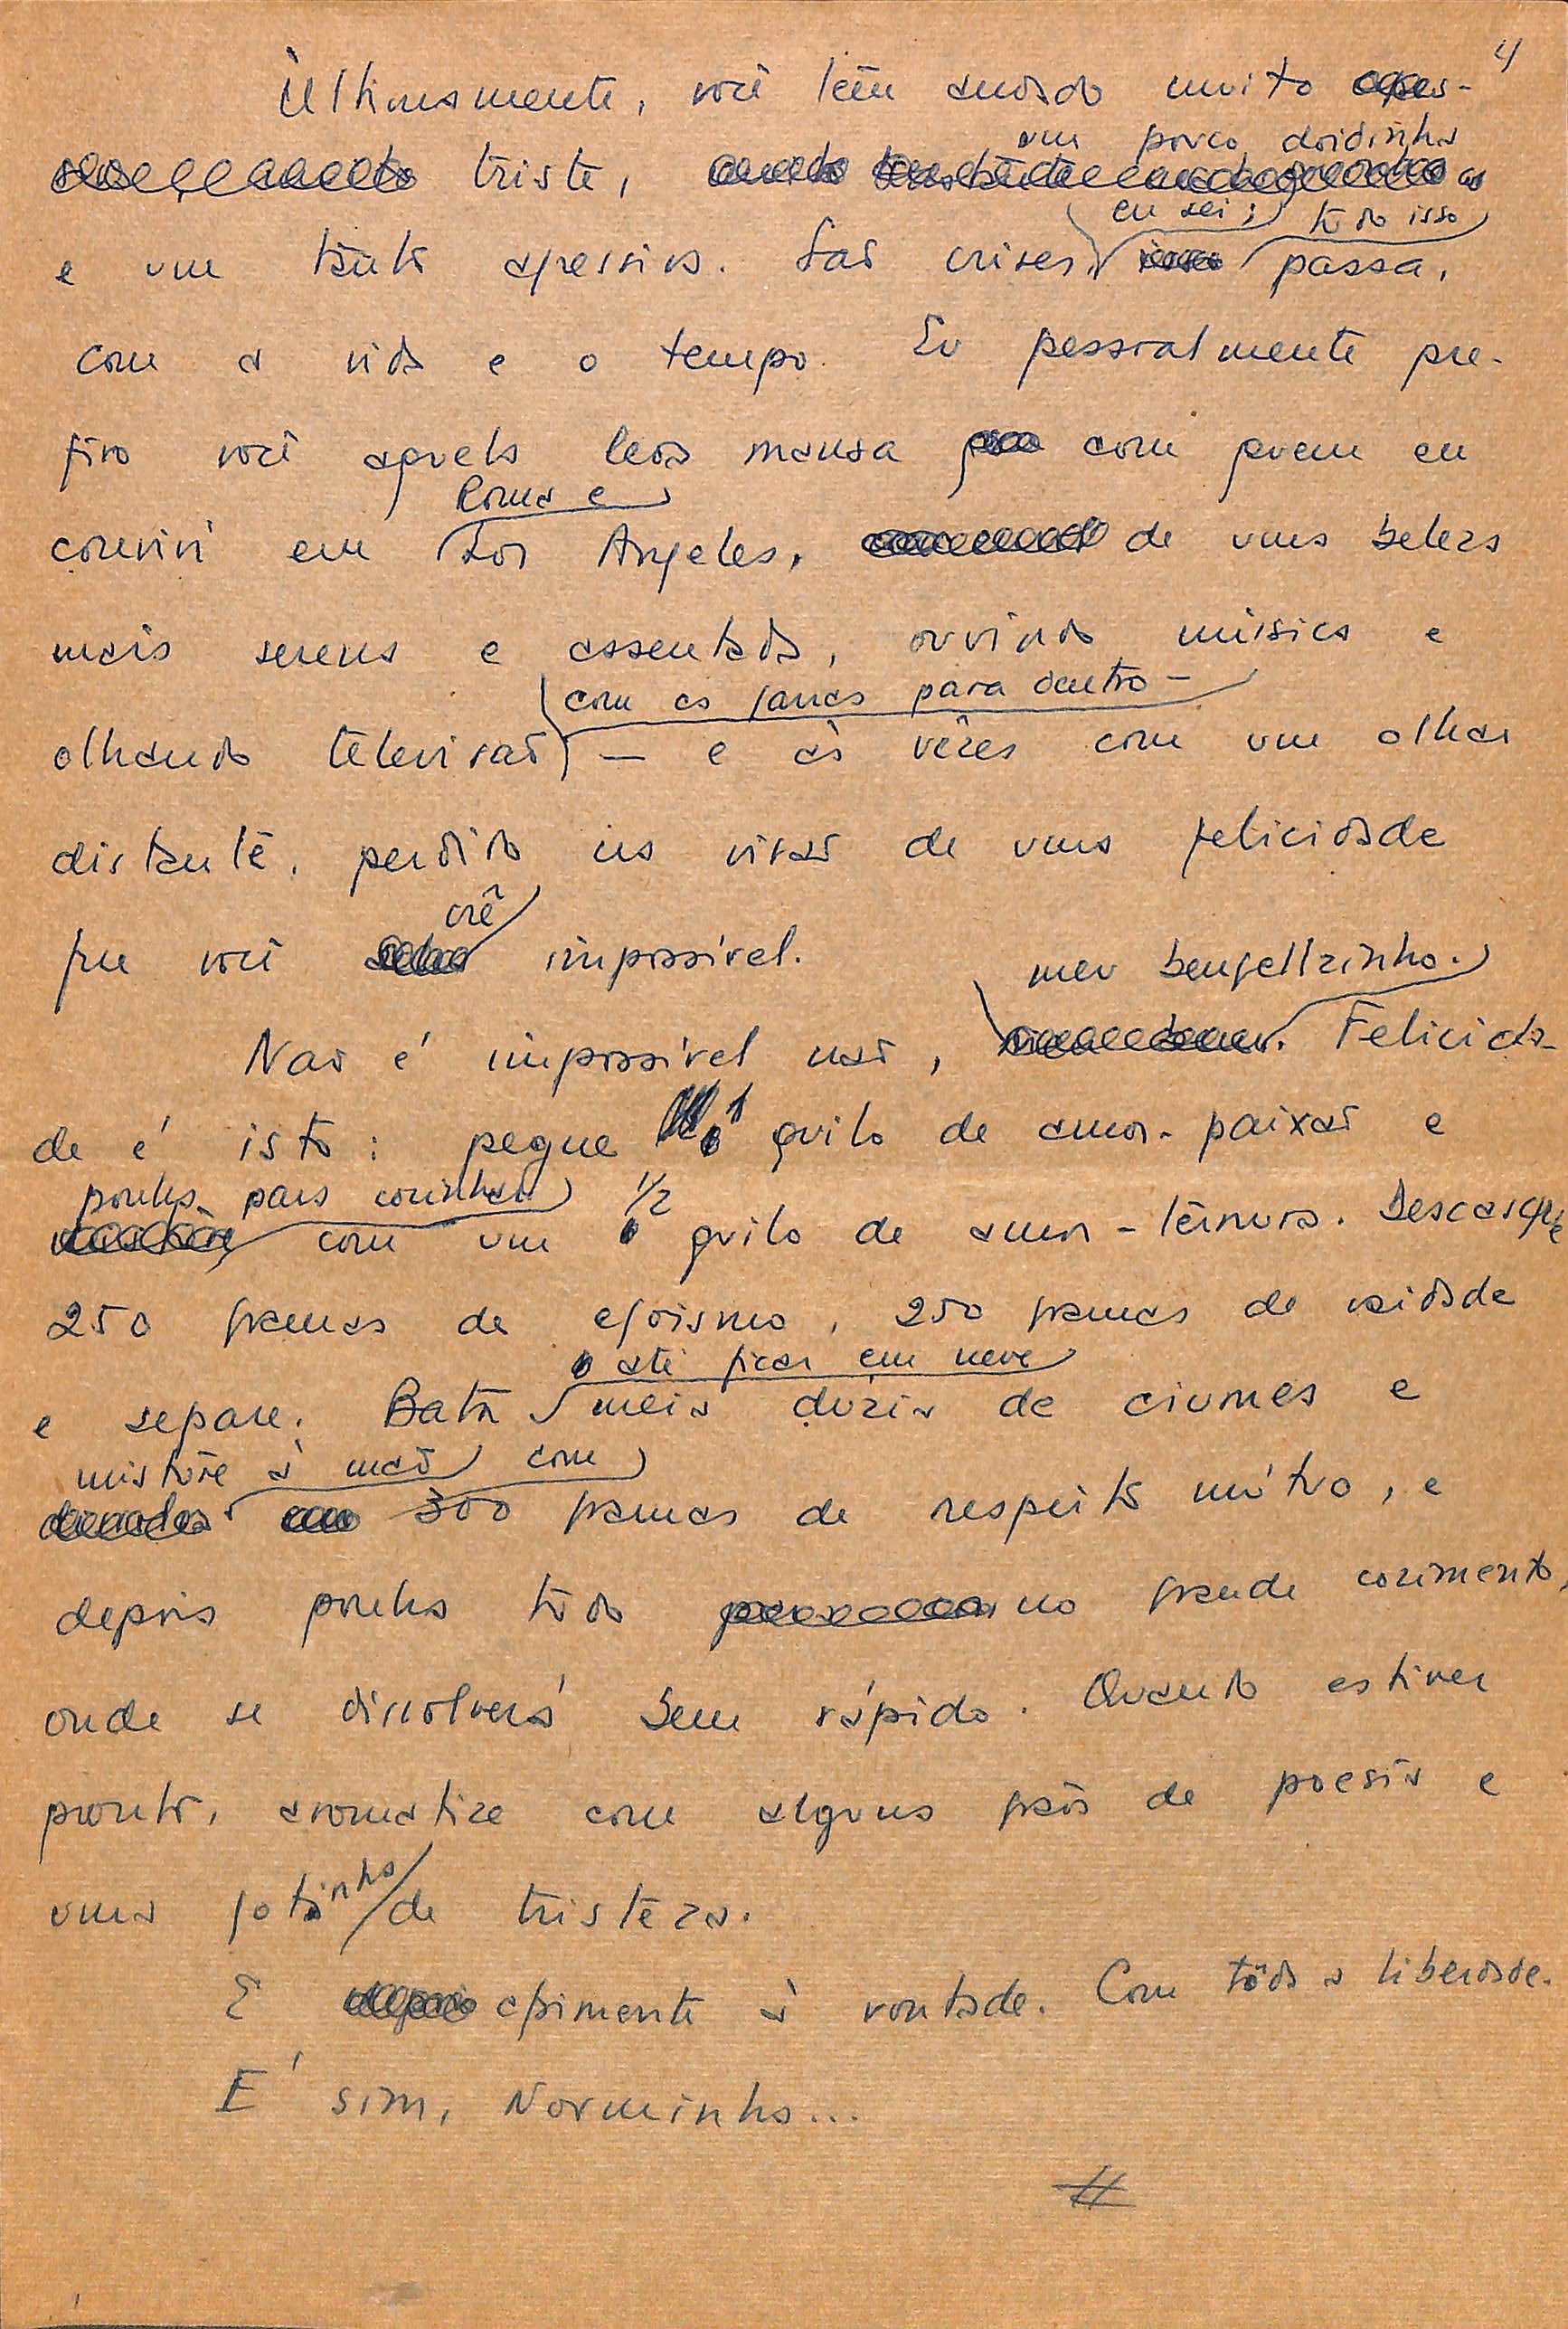 4
Ultimamente, você tem andado muito
um pouco doidinha
triste,
eu sei; tudo isso
e um tanto agressiva. São crises, passa,
com a vida e o tempo. Eu pessoalmente pre-
firo você aquela leoa mansa com quem eu
Roma e
convivi em Los Angeles, de uma beleza
mais serena e assentada, ouvindo música e
com as garras para dentro –
olhando televisão — e às vêzes com um olhar
distante, perdido na visão de uma felicidade
crê
que você impossível.
meu bengellzinho.
Não é impossível não, Felicida-
de é isto: pegue 1 quilo de amor-paixão e
ponha para cozinhar 1/2
com um quilo de amor-ternura. Descasque
250 gramas de egoismo, 250 gramas de vaidade
até ficar em neve
e separe. Bata meia duzia de ciumes e
misture à mão com
300 gramas de respeito mútuo, e
depois ponha tudo no grande cozimento,
onde se dissolverá bem rápido. Quando estiver
pronto, aromatize com alguns grãos de poesia e
uma gotinha de tristeza.
E apimente à vontade. Com tôda a liberdade.
É sim, Norminha...